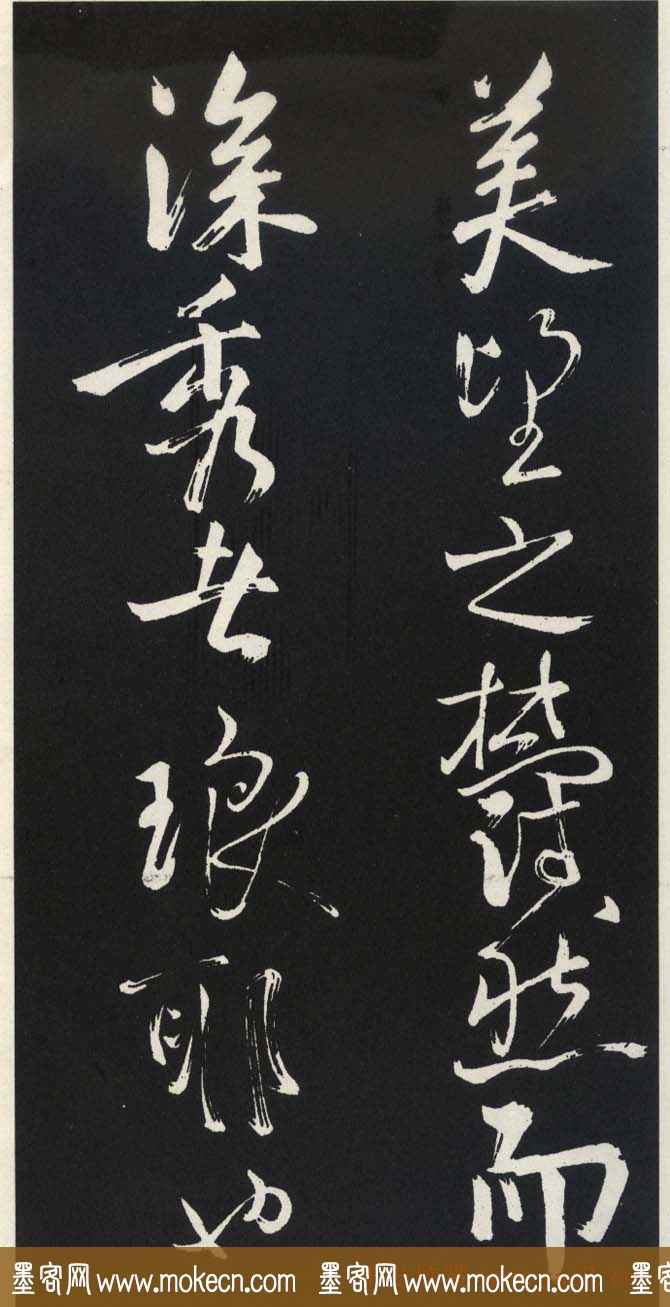 美望之蔚然而
深秀者琅耶也
墨客网 www.mokecn.com 墨客网 www.mokecn.com 墨客